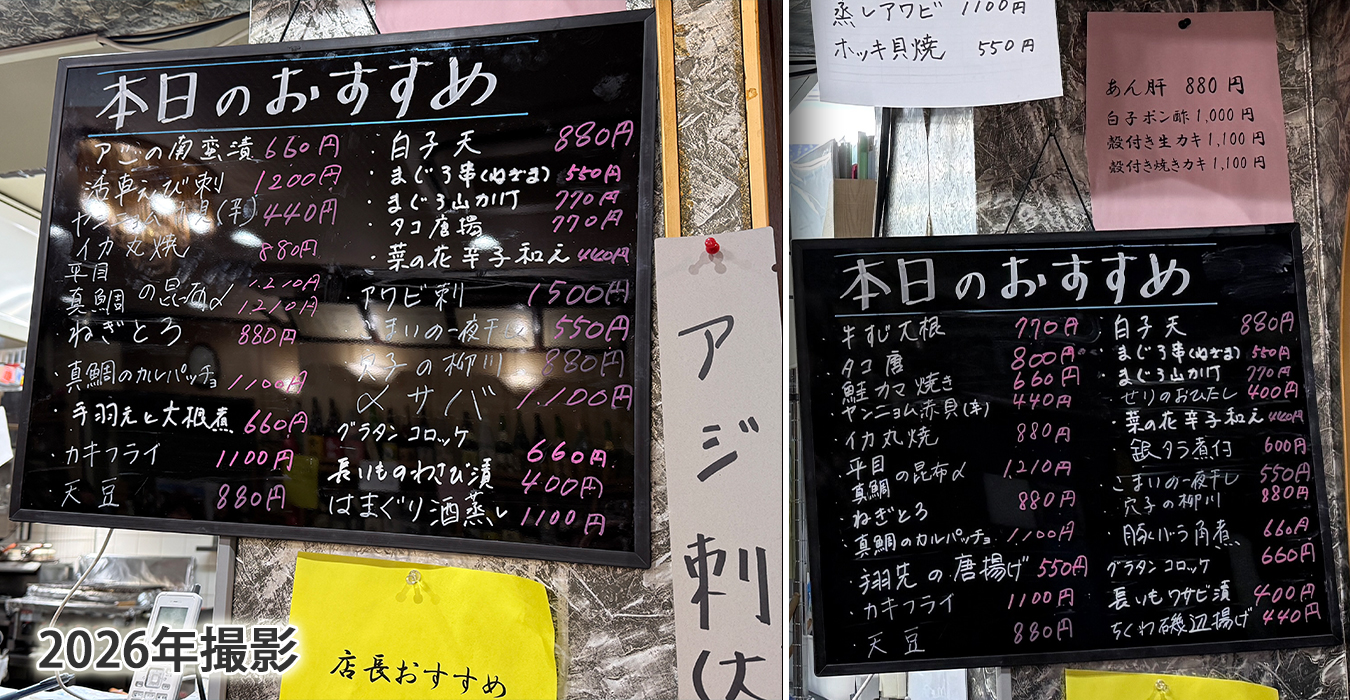 本日のおすすめ
アジの南蛮漬 660円
活車えび刺 1200円
ヤンニョム赤貝(辛) 440円
イカ丸焼 880円
平目 の昆布〆 1.210円
真鯛 1210円
・ねぎとろ 880円
・真鯛のカルパッチョ 1,100円
・手羽元と大根煮 660円
・カキフライ 1100円
・天豆 880円
・白子天 880円
・まぐろ串(ねぎま) 550円
・まぐろ山かけ 770円
・タコ唐揚 770円
・菜の花辛子和え 440円
・アワビ刺 1500円
こまいの一夜干し 550円
・穴子の柳川 880円
〆サバ 1.100円
グラタンコロッケ 660円
長いものわさび漬 400円
はまぐり酒蒸し 1100円
アジ刺
店長おすすめ
2026年撮影
蒸しアワビ 1100円
ホッキ貝焼 550円
あん肝 880円
白子ポン酢 1,000円
殻付き生カキ 1,100円
殻付き焼きカキ 1,100円
本日のおすすめ
・牛すじ大根 770円
・タコ唐 800円
鮭カマ焼き 660円
ヤンニョム赤貝(辛) 440円
・イカ丸焼 880円
・平目 の昆布〆 1,210円
真鯛
・ねぎとろ 880円
・真鯛のカルパッチョ 1,100円
・手羽先の唐揚げ 550円
・カキフライ 1100円
・天豆 880円
・白子天 880円
・まぐろ串(ねぎま) 550円
・まぐろ山かけ 770円
・せりのおひたし 400円
・菜の花辛子和え 440円
銀タラ煮付 600円
・こまいの一夜干し 550円
・穴子の柳川 880円
・豚バラ角煮 660円
グラタンコロッケ 660円
長いもワサビ漬 400円
ちくわ磯辺揚げ 440円